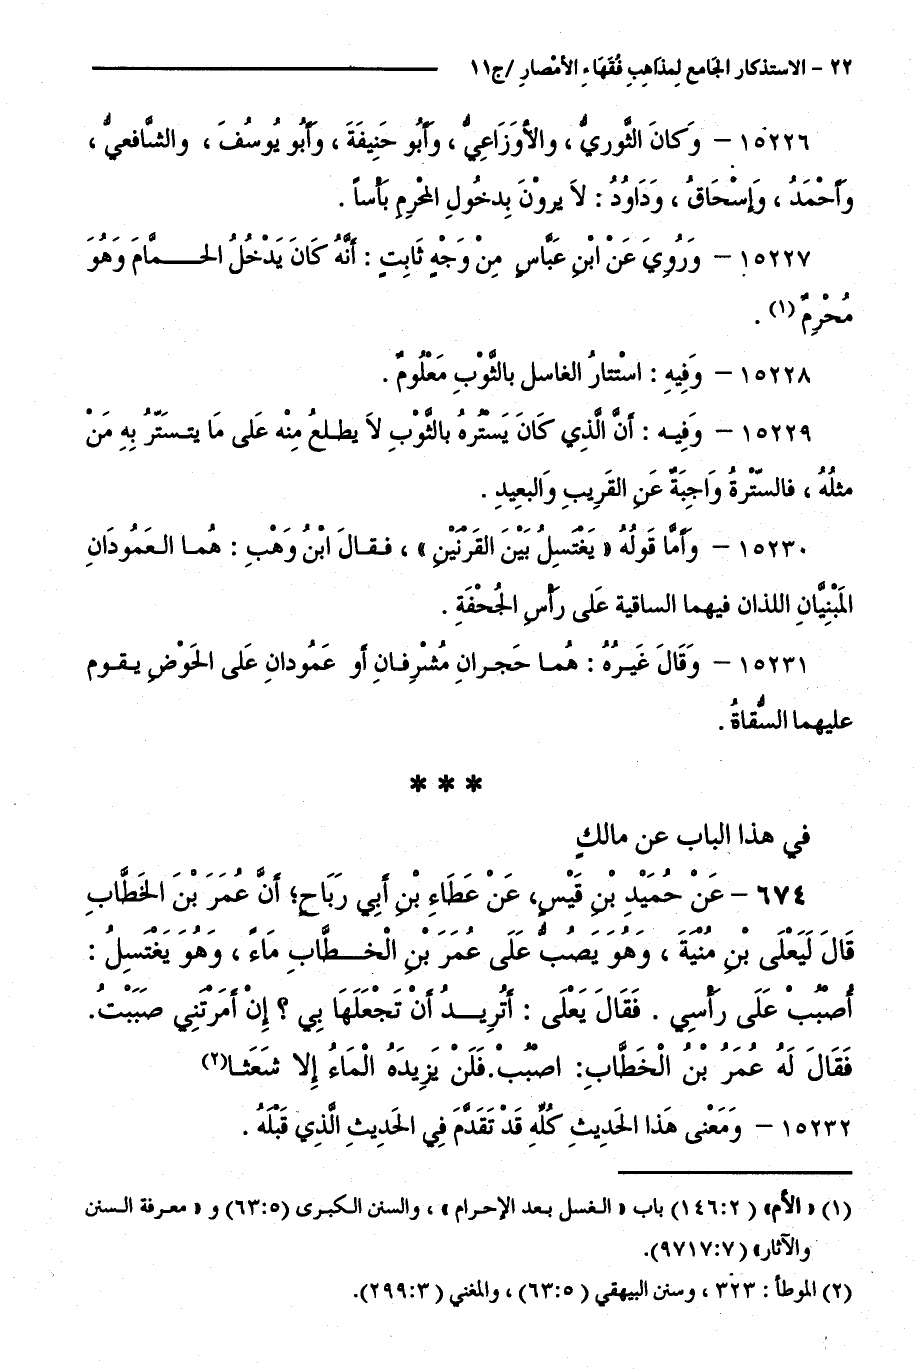 ٢٢ - الاستذكار الجَامع لِمذاهِبِ فُقَهَاءِ الأمْصارِ /ج١١
١٥٢٢٦ - وَكانَ الثَّوريُّ ، والأوْزَاعِيُّ ، وأَبُو حَنِيفَةَ ، وَأَبُو يُوسُفَ ، والشَّافعيُّ ،
وَأَحْمَدُ ، وَإِسْحَاقُ ، وَدَاوُدُ : لاَ يروْنَ بِدخُولِ المْحْرِمِ بَأْساً .
١٥٢٢٧ - وَرُوِيَ عَنْ ابْنِ عَبَّاسٍ مِنْ وَجْهٍ ثَابِتٍ : أَنَّهُ كَانَ يَدْخُلُ الحَــمَّامَ وَهُوَ
مُحْرِمٌ (١) .
١٥٢٢٨ - وَفِيهِ : اسْتتارُ الغاسل بالثَّوْبِ مَعْلُومٌ .
١٥٢٢٩ - وَفِيـه : أَنَّ الَّذِي كَانَ يَسْتُرهُ بالثَّوْبِ لاَ يطـلعُ مِنْه عَلَى مَا يتـستَّرُ بِهِ مَنْ
مثلُهُ ، فالسَّتْرةُ وَاجِبَةٌ عَنِ القَرِيبِ وَالبعِيدِ .
١٥٢٣٠ - وَأَمَّا قَولُهُ « يَغْتَسِلُ بَيْنَ القَرنَيْنِ » ، فـقـالَ ابْنُ وَهْبٍ : هُمـا العـمُودَانِ
المَبْنِيَّانِ اللذان فيهما الساقية عَلى رَأْسِ الجُحْفَةِ .
١٥٢٣١ - وَقَالَ غَيـرُهُ : هُمـا حَجـرانِ مُشْرِفـانِ أَو عَمُودانِ عَلى الحَوْضِ يـقـوم
عليهما السُّقاةُ .
***
في هذا الباب عن مالكٍ
٦٧٤ - عَنْ حُمَيْدِ بْنِ قَيْسٍ، عَنْ عَطَاءِ بْنِ أَبِي رَبَاحٍ؛ أَنَّ عُمَرَ بْنَ الخَطَّابِ
قَالَ لَيَعْلَى بْنِ مُنْيَةَ ، وَهُوَ يَصُبُّ عَلَى عُمَرَ بْنِ الْخــطَّابِ مَاءً ، وَهُوَ يَغْتَسِلُ :
أُصْبُبْ عَلَى رَأْسِي . فَقَالَ يَعْلَى : أَتُرِيــدُ أَنْ تَجْعَلَهَا بِي ؟ إِنْ أَمَرْتَنِي صَبَبْتُ.
فَقَالَ لَهُ عُمَرُ بْنُ الْخَطَّابِ: اصْبُبْ.فَلَنْ يَزِيدَهُ الْمَاءُ إِلا شَعَثـا(٢)
١٥٢٣٢ - وَمَعْنى هَذا الحَديثِ كُلِّهِ قَدْ تَقَدَّمَ فِي الحَدِيثِ الَّذِي قَبْلَهُ .
(١) « الأم» ( ١٤٦:٢) باب « الـغسل بـعد الإحرام » ، والسنن الكبرى (٦٣:٥) و « معرفة الـسنن
والآثار» (٩٧١٧:٧).
(٢) الموطأ : ٣٢٣ ، وسنن البيهقي ( ٦٣:٥) ، والمغني ( ٢٩٩:٣).